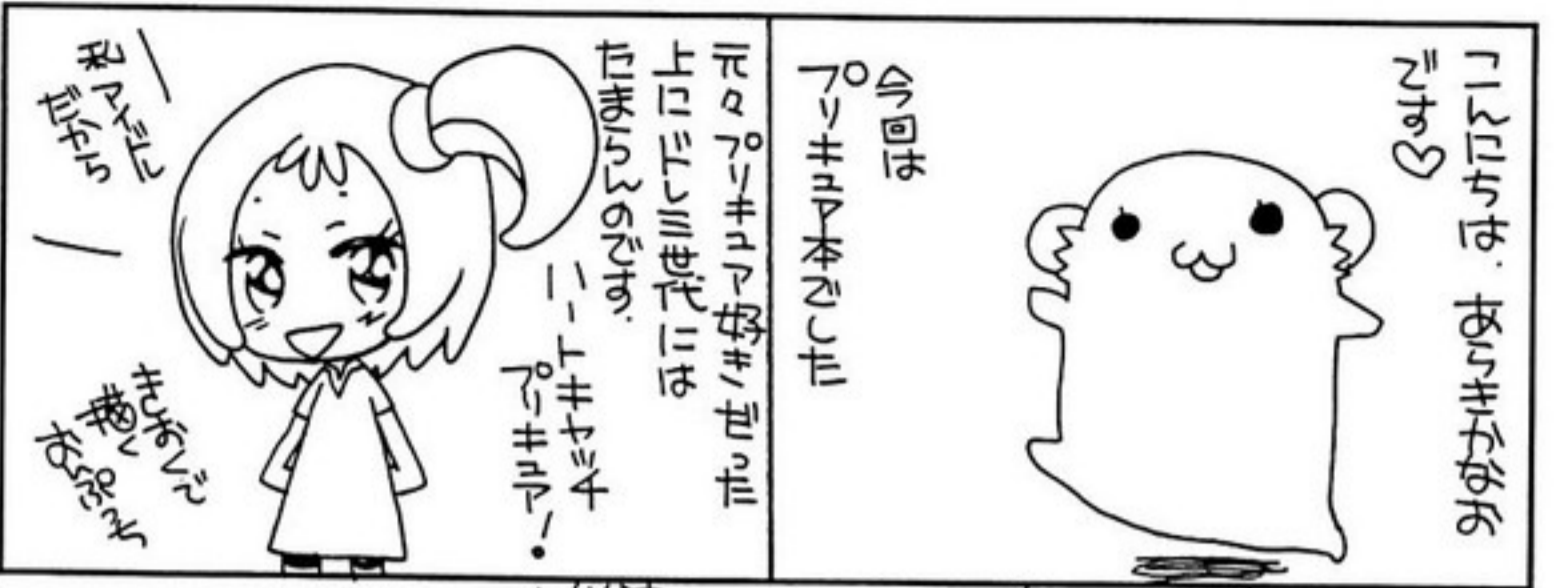 こんにちは、あらきかなお
です♡
今回は
プリキュア本でした
元々プリキュア好きだった
上にドレミ世代には
たまらんのです。
ハートキャッチ
プリキュア!
私アイドル
だから
きおくで
描く
おんぷっち